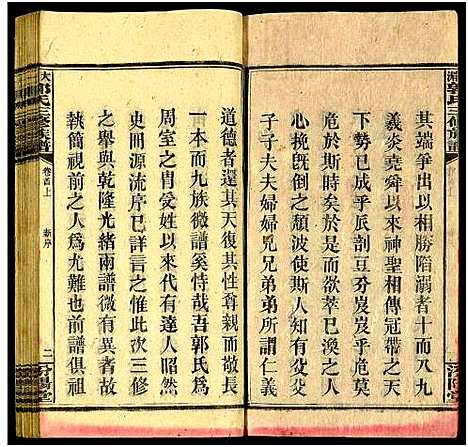 其端爭出以相勝陷溺者十而八九
義炎堯舜以來神聖相傳冠帶之天
下勢已成乎瓜剖豆分岌岌乎毫末
危於斯時矣於是而欲萃已渙之人
心挽既倒之頹波使斯人知有父父
子子夫夫婦婦兄兄弟弟所謂仁義
道德者還其天復其性尊親而敬長
一本而九族微譜奚恃哉吾郭氏爲
周室之胄受姓以來代有達人昭然
史冊源流序已詳言之惟此次三修
之舉與乾隆光緒兩譜微有異同而
執簡視前之人爲尤難也前譜俱祖
大
郭氏三修族譜
卷首上
新序
二
汾陽堂
郭氏三修族譜
汾陽堂